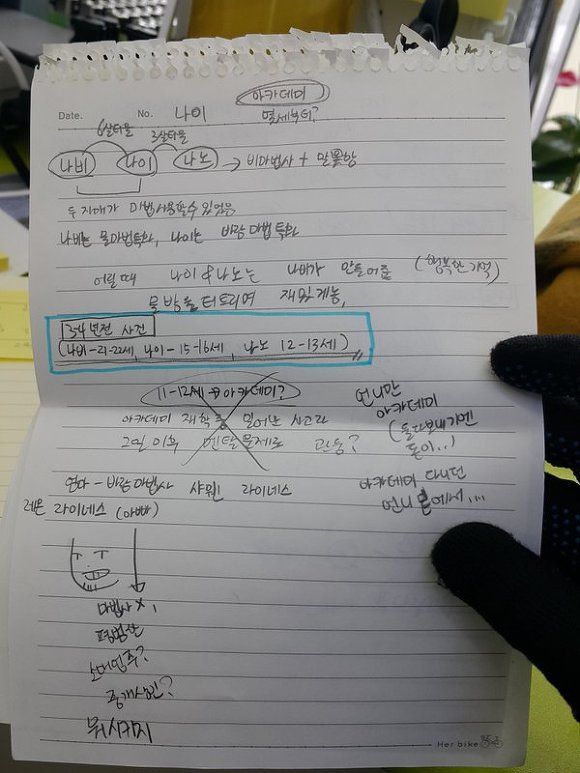 아카데미
Date. No. 나이 열세부터?
6살터울 3살터울
나비 나이 나노 → 비마법사 +
두 지대가 마법사용할수 있었음
나비는 물마법특화, 나이는 바람마법특화
어릴 때 나이&나노는 나비가 만들어준 (행복한 기억)
물방울 터트리며 재밌게놈,
3-4년전 사건
(나비-21-22세, 나이-15-16세, 나노 12-13세)
11-12세 → 아카데미?
아카데미 재학중 일어난 사고라
그일 이후 멘탈문제로 관둠?
언니만
아카데미
(둘다보내기엔
돈이..)
엄마 - 바람마법사 샤웬 라이네스
아카데미 다니던
언니 에서...
레온 라이네스 (아빠)
마법사 x,
평범한
소매민주?
중개상인?
뭐시키지
Her bike